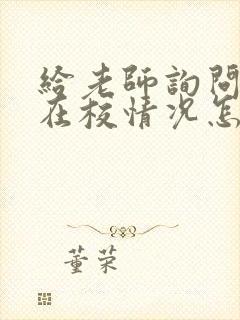 給老師詢問
在校情况怎
董荣